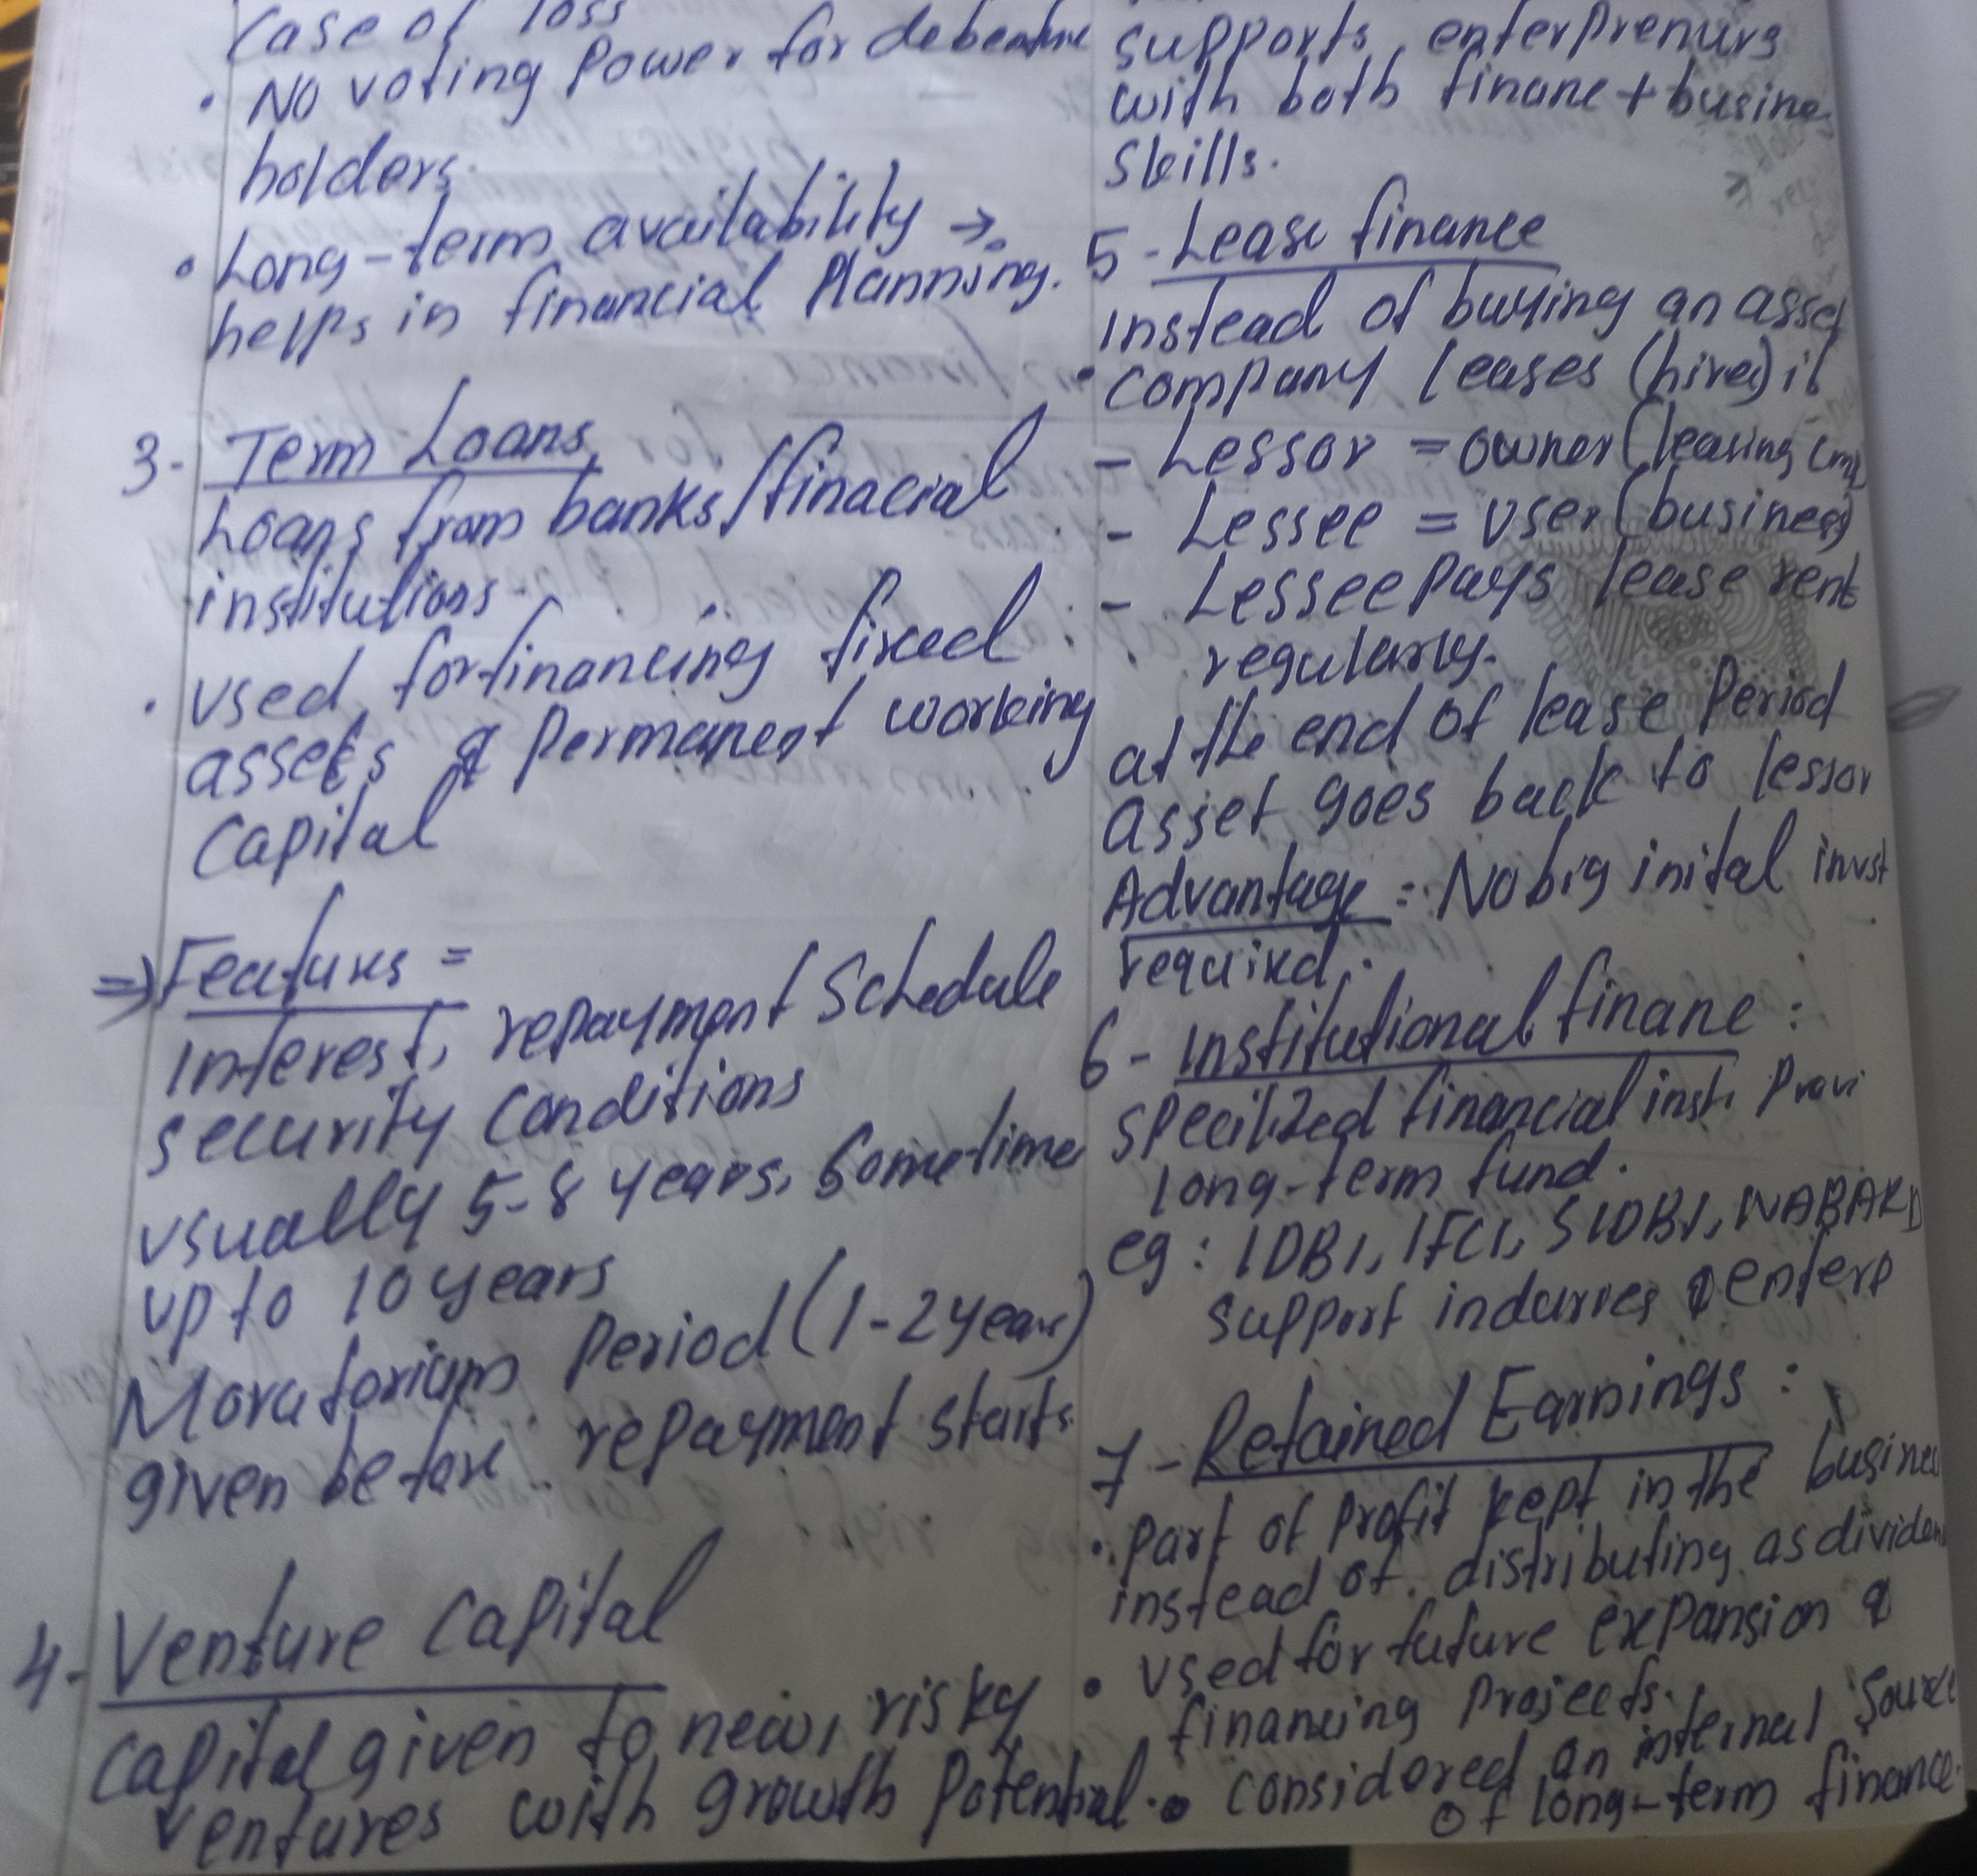 case of loss
• No voting power for debenture
holders.
• Long-term availability →
helps in financial planning.
3- Term Loans
Loans from banks/finacial
institutions.
• used for financing fixed
assets & permanent working
capital
⇒ Features =
Interest, repayment Schedule
security conditions
usually 5-8 years, Sometime
up to 10 years
Moratorium Period (1-2 years)
given before repayment starts.
4- Venture capital
capital given to new, risky
ventures with growth potential.
supports enterprenurs
with both finane + busine
skills.
5- Lease finance
instead of buying an asset
• company leases (hires) it
- Lessor = owner (leasing cmp)
- Lessee = user (business)
- Lessee pays lease rent
regularly.
at the end of lease Period
asset goes back to lessor
Advantage : No big inital invst
required.
6- institutional finane :
specilized financial insti Provi
long-term fund.
eg : IDBI, IFCI, SIDBI, NABARD
support & enterp
7- Retained Earnings :
• part of profit kept in the busines
instead of distributing as dividen
• used for future expansion &
financing projects.
• considered an internal source
of long-term finance.